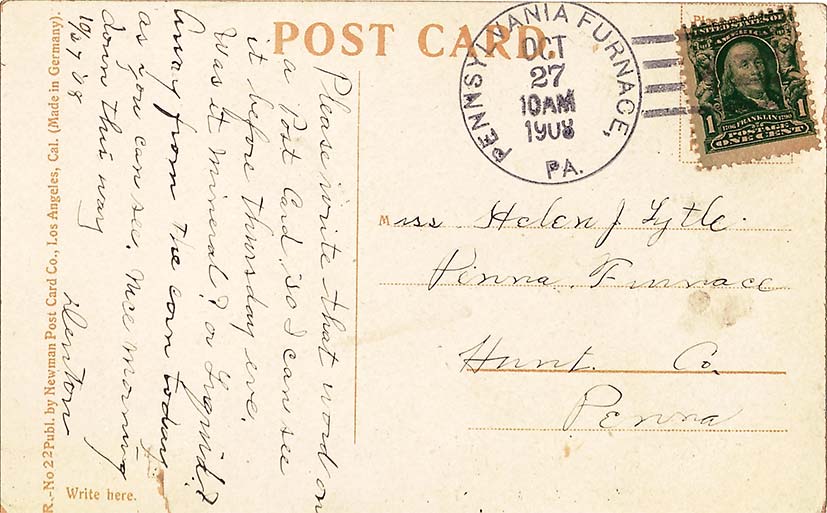 POST CARD.
PENNSYLVANIA FURNACE,
OCT
27
10AM
1908
PA.
UNITED STATES OF
AMERICA
1 1
1706 FRANKLIN 1790
POSTAGE
ONE CENT
Miss Helen J Lytle.
Penna. Furnace
Hunt. Co.
Penna
Please write that word on
a Post Card, so I can see
it before Thursday eve.
Was it mineral? or Liquid?
Away from the corn today
as you can see. Nice morning
down this way
10/27 '08
Denton
Write here.
R.-No 22 Publ. by Newman Post Card Co., Los Angeles, Cal. (Made in Germany).